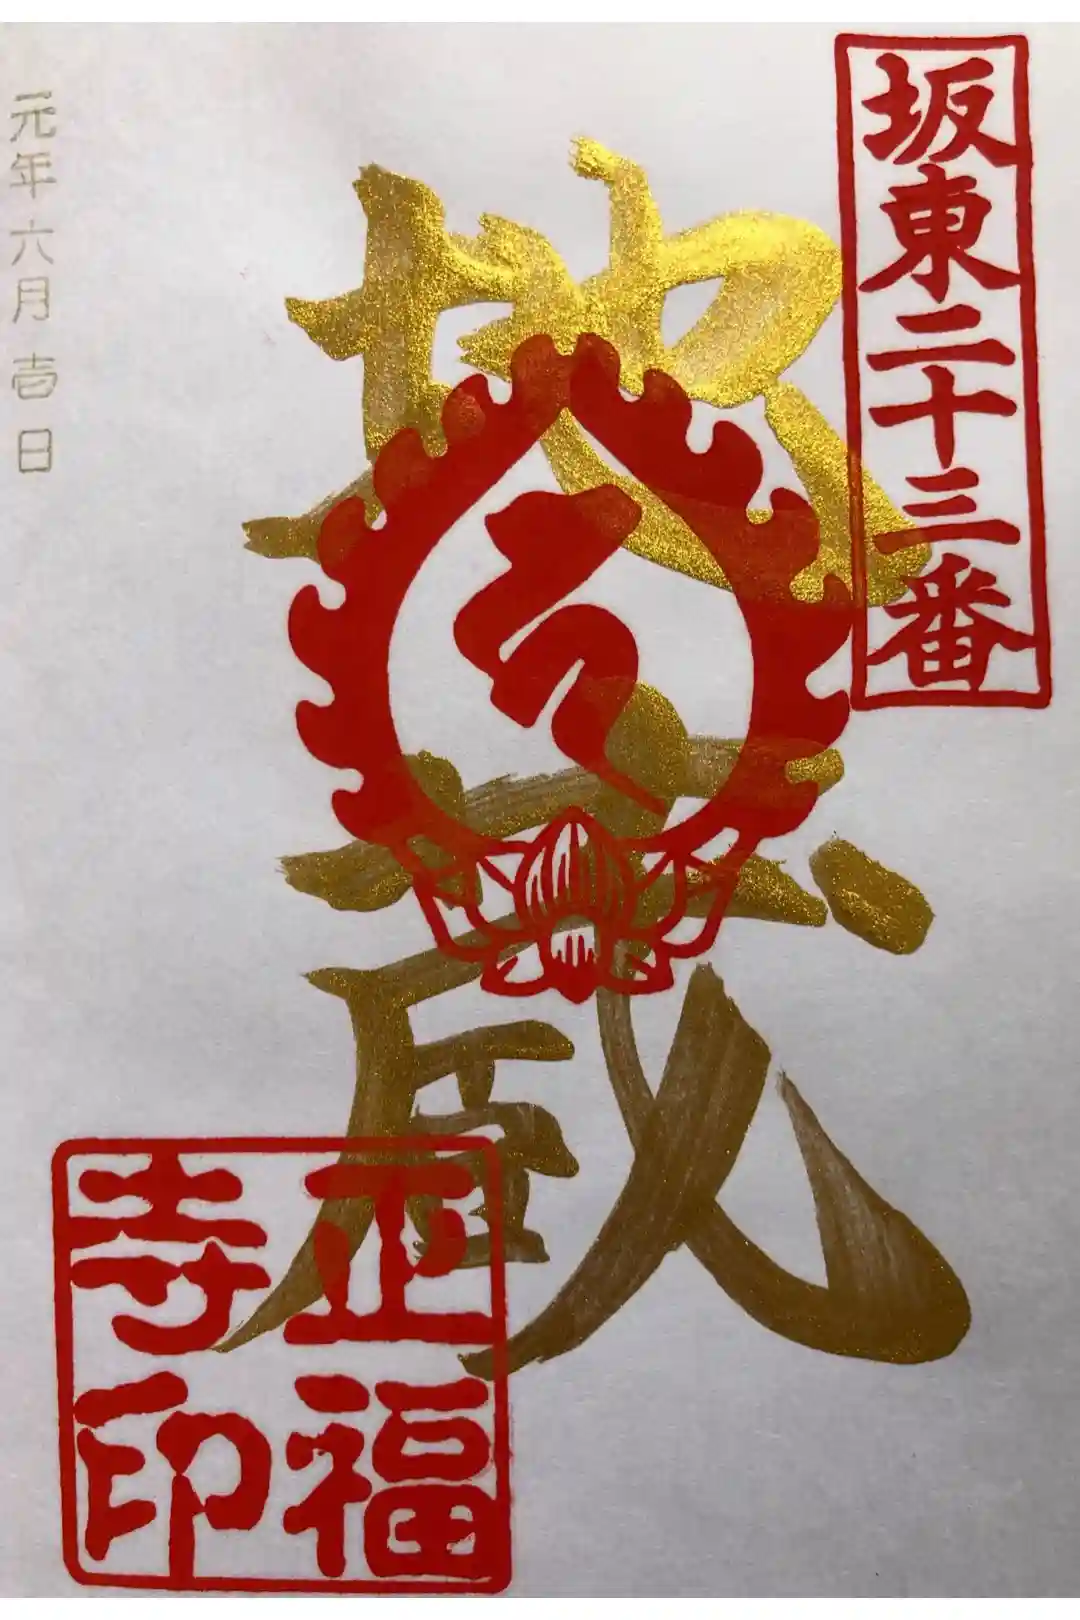 坂東二十三番
地蔵
元年六月壱日
正福
寺印